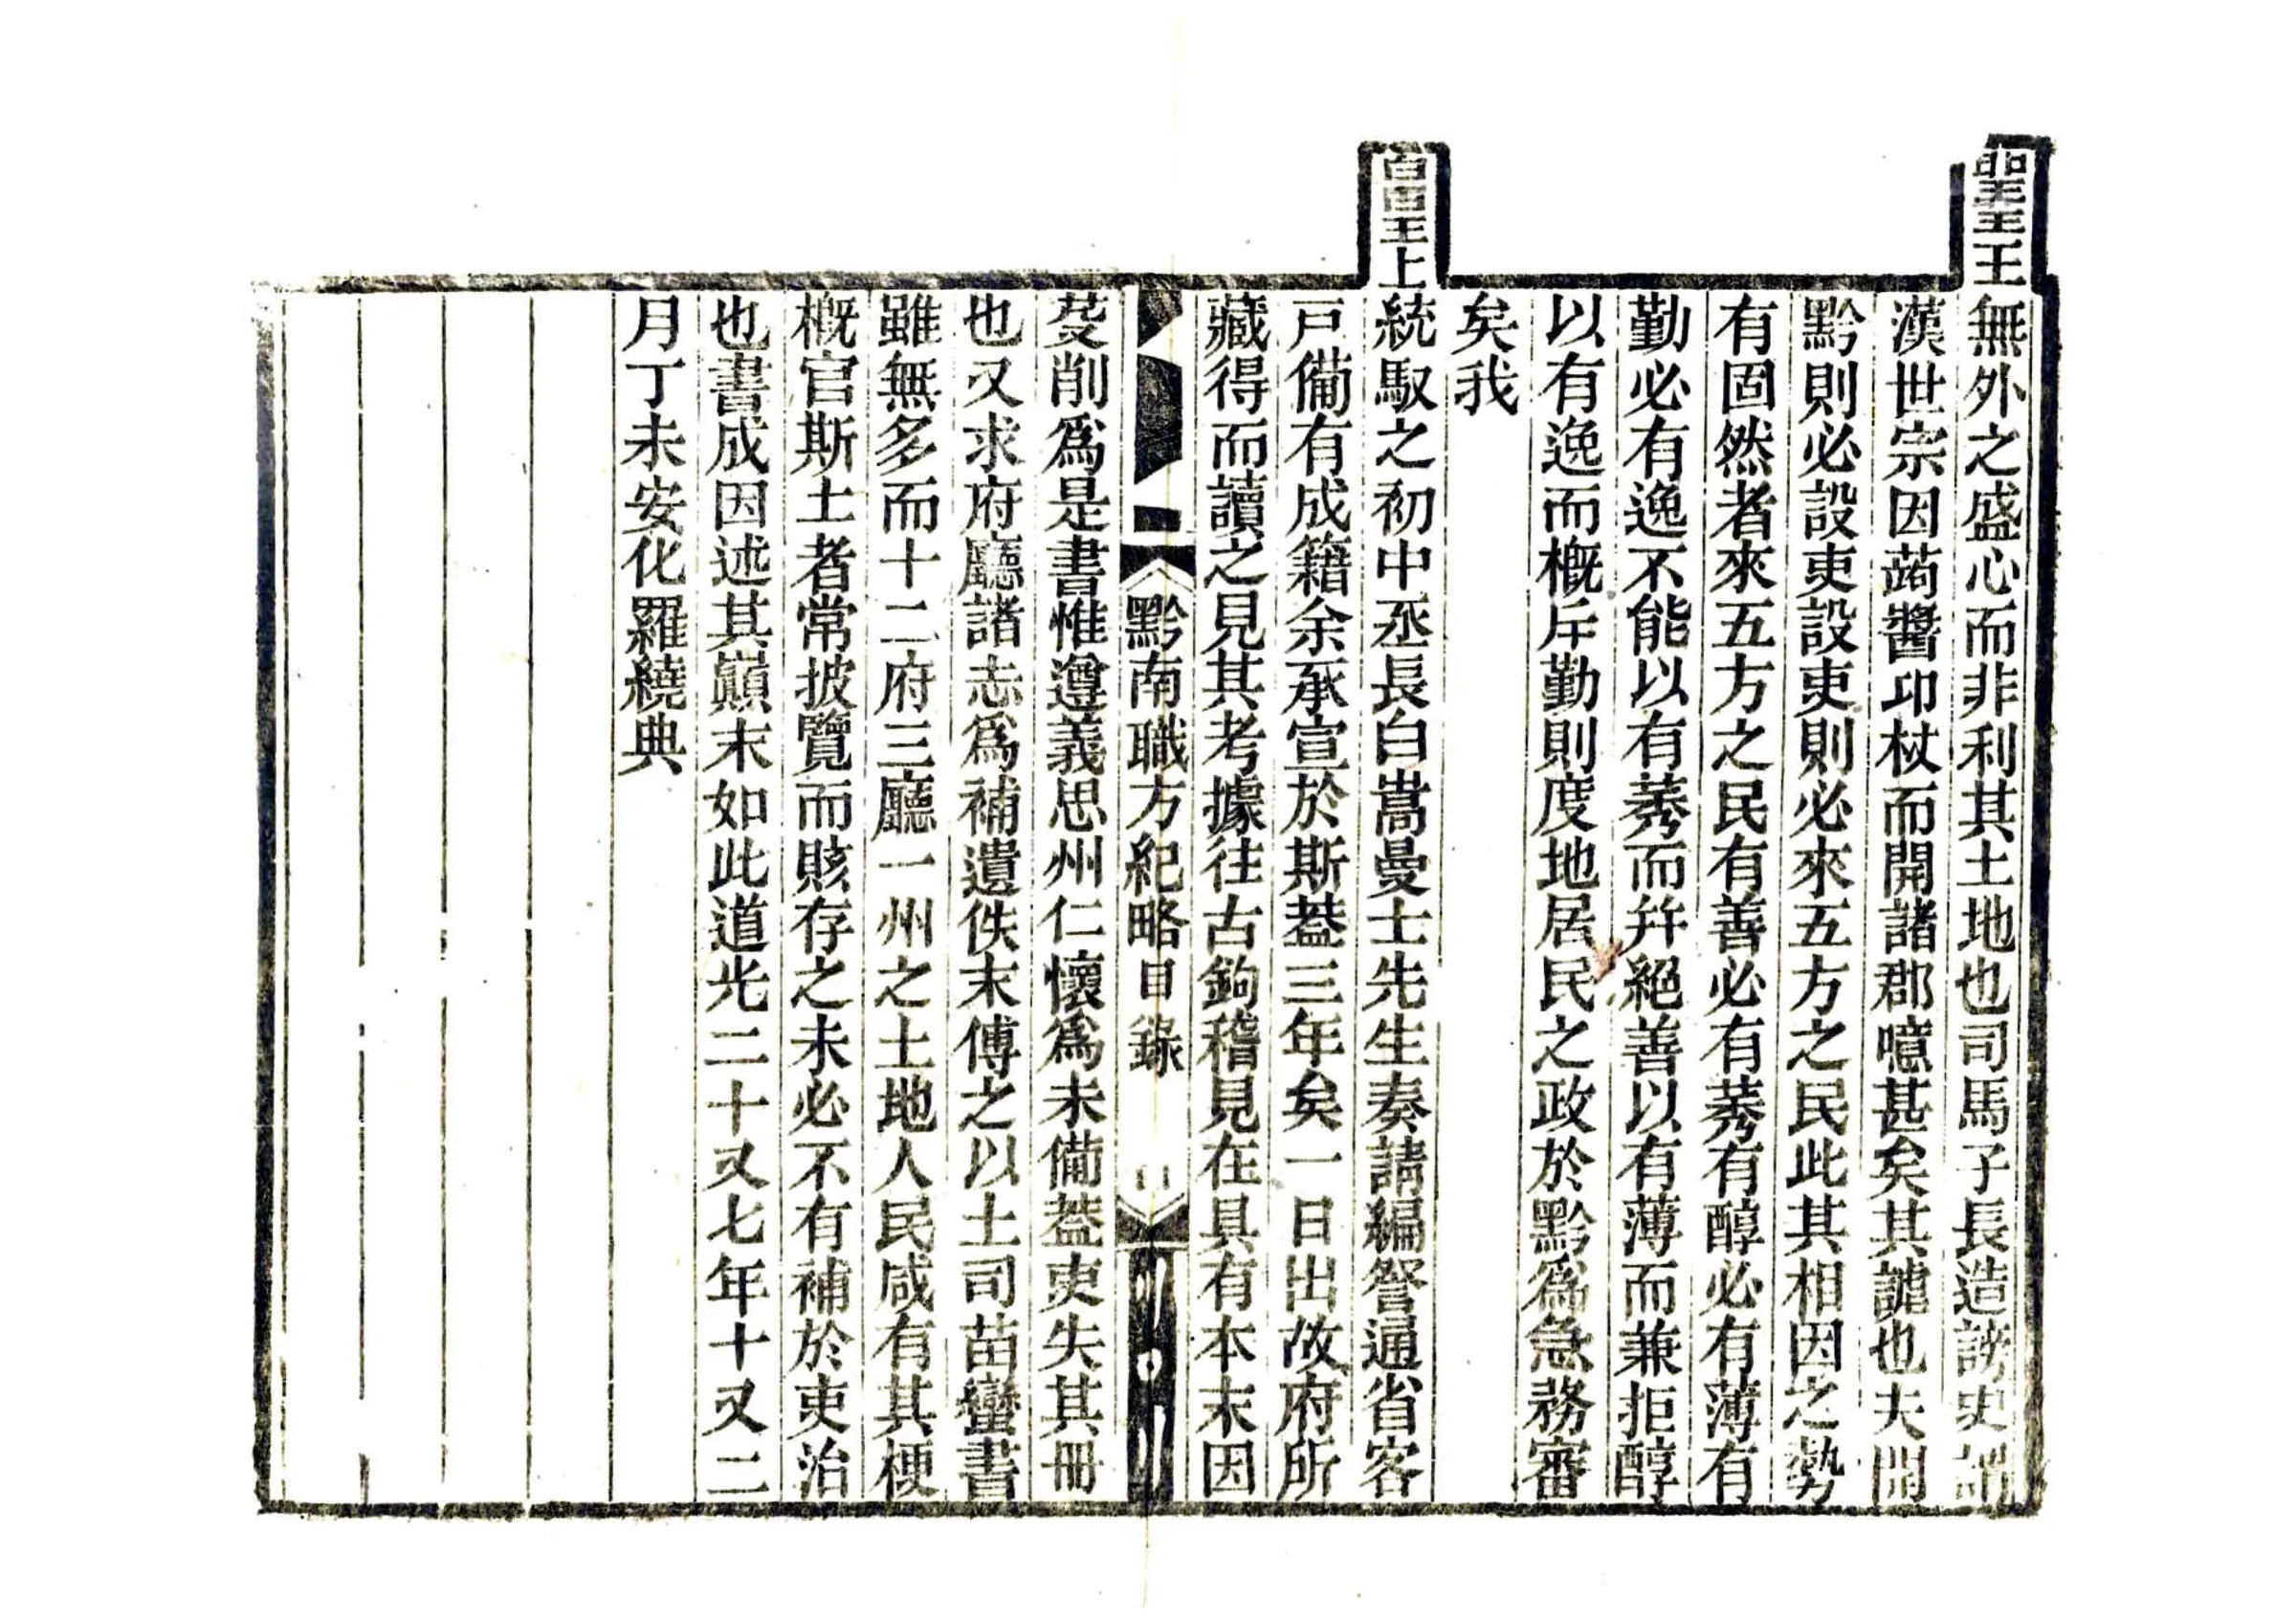 聖王無外之盛心而非利其土地也司馬子長造謗史謂
漢世宗因蒟醬卭杖而開諸郡噫甚矣其謔也夫開
黔則必設吏設吏則必來五方之民此其相因之勢
有固然者來五方之民有善必有莠有醇必有薄有
勤必有逸不能以有莠而幷絕善以有薄而兼拒醇
以有逸而槪斥勤則度地居民之政於黔爲急務審
矣我
皇上統馭之初中丞長白嵩曼士先生奏請編詧通省客
戸備有成籍余承宣於斯葢三年矣一日出故府所
藏得而讀之見其考據往古鉤稽見在具有本末因
黔南職方紀略目錄
芟削爲是書惟遵義思州仁懷爲未備葢吏失其冊
也又求府廳諸志爲補遺佚末傅之以土司苗蠻書
雖無多而十二府三廳一州之土地人民咸有其梗
槪官斯土者常披覽而賅存之未必不有補於吏治
也書成因述其巔末如此道光二十又七年十又二
月丁未安化羅繞典